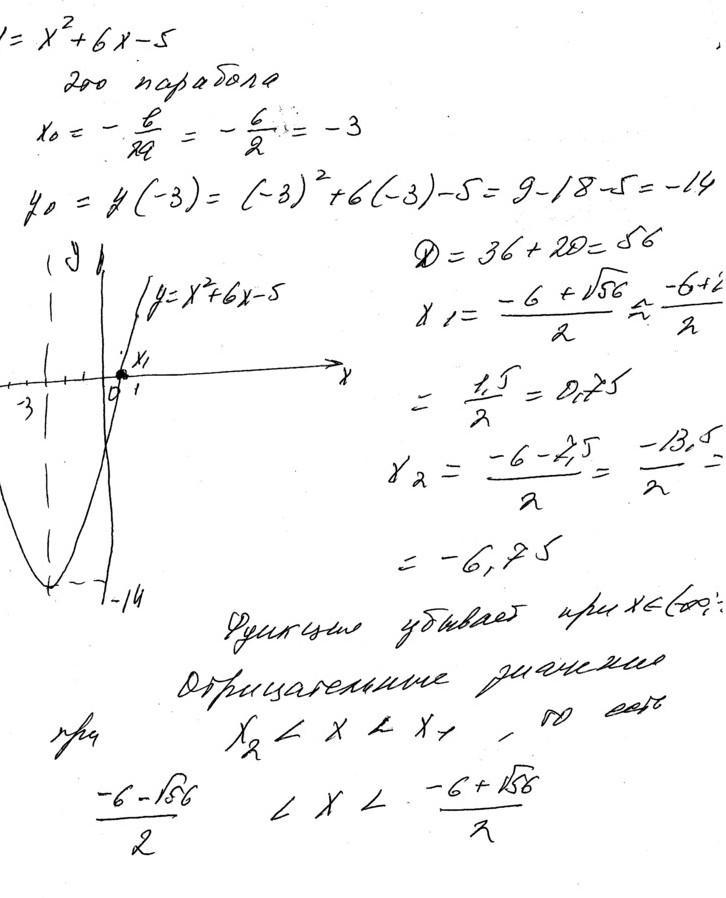 y = x² + 6x - 5
это парабола
x₀ = - b/2a = - 6/2 = -3
y₀ = y(-3) = (-3)² + 6(-3) - 5 = 9 - 18 - 5 = -14
D = 36 + 20 = 56
x₁ = (-6 + √56)/2 ≈ (-6 +
/2
= 1,5/2 = 0,75
x₂ = (-6 - 7,5)/2 = -13,5/2 =
= -6,75
y
y = x² + 6x - 5
x₁
x
-3
0
1
-14
Функция убывает при x ∈ (-∞;
Отрицательные значения
при x₂ < x < x₁, то есть
(-6 - √56)/2 < x < (-6 + √56)/2